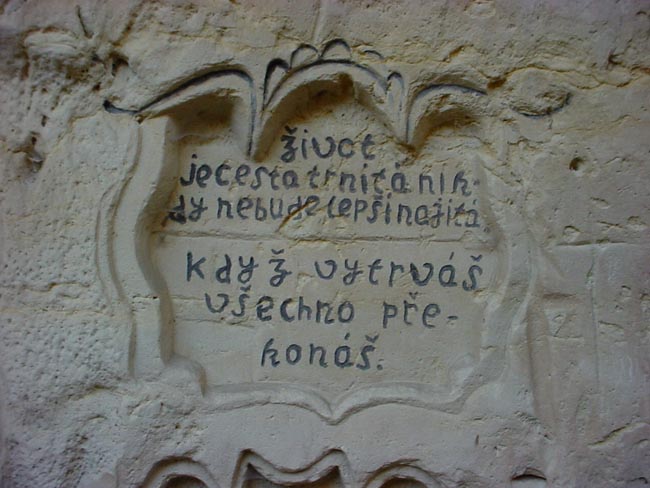 život
je cesta trnitá nik-
dy nebude lepší najitá.
když vytrváš
všechno pře-
konáš.